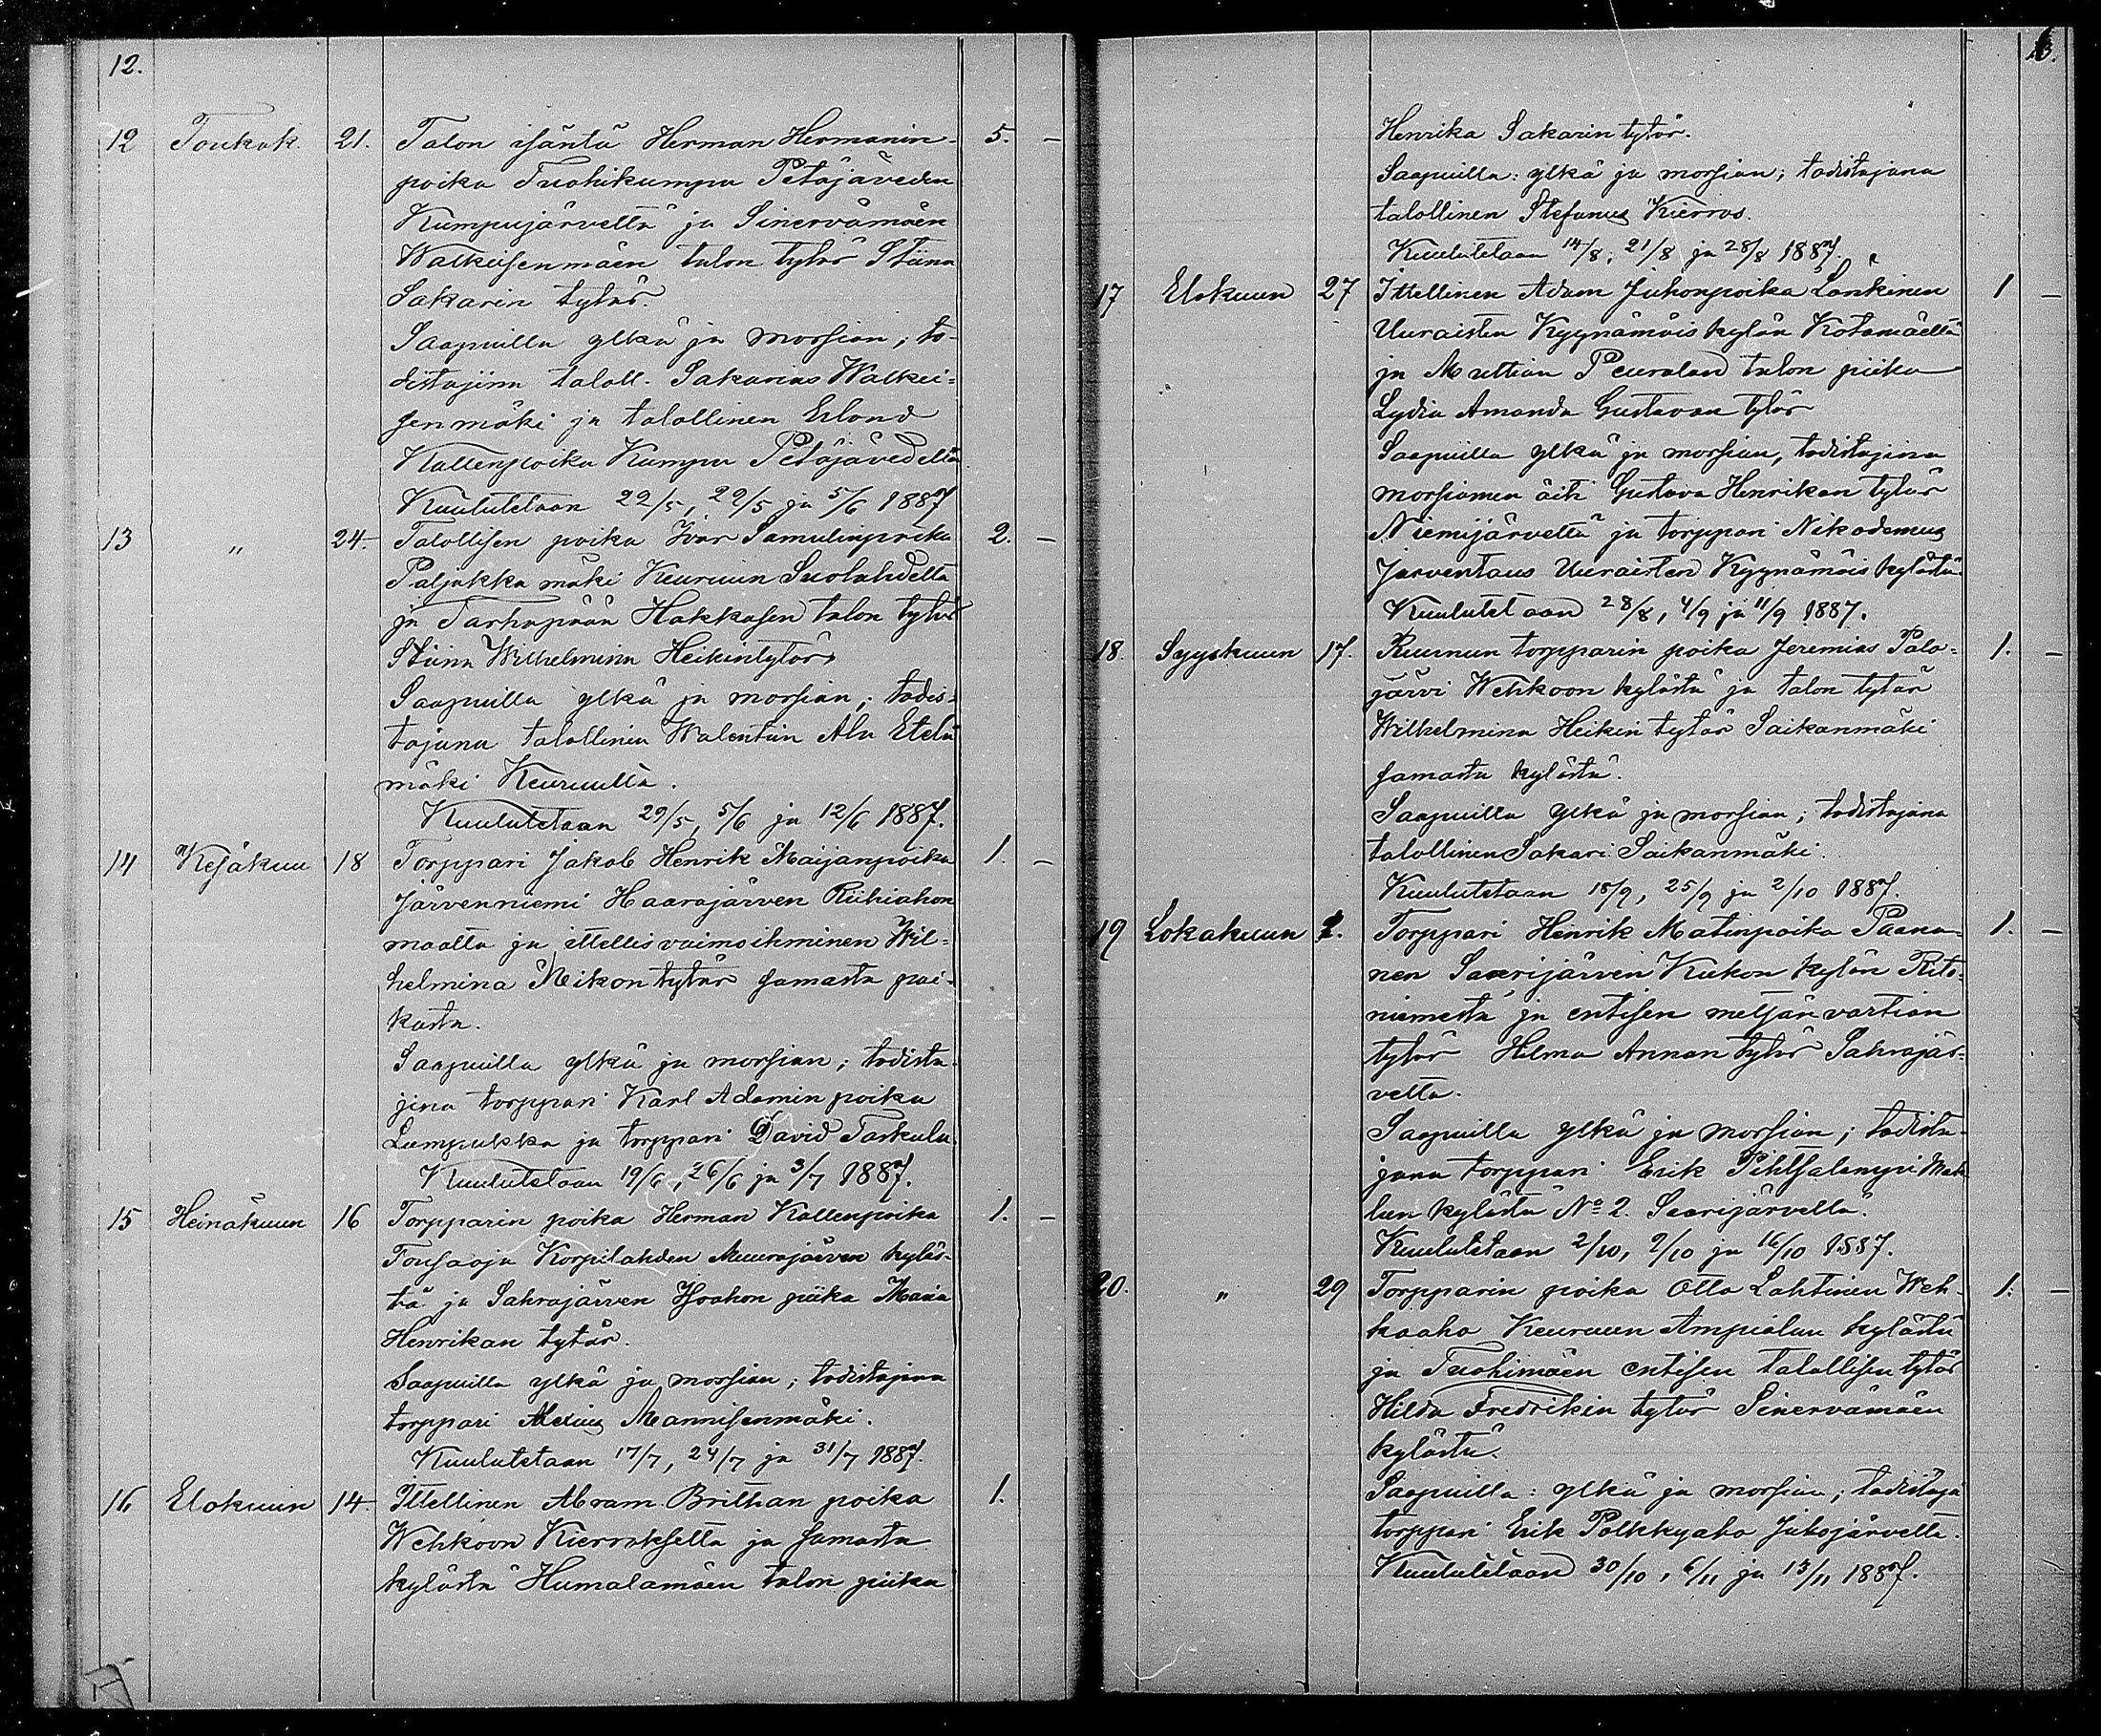 12.
12 Toukok. 21. Talon isäntä Herman Hermanin- 5. —
poika Tuohikumpu Petäjäveden
Kumpujärveltä ja Sinervämäen
Walkeisenmäen talon tytär Stiina
Sakarin tytär.
Saapuilla ylkä ja morsian; to-
distajina taloll. Sakarias Walkei-
senmäki ja talollinen Erlond
Kallenpoika Kumpu Petäjävedeltä
Kuulutetaan 22/5, 29/5 ja 5/6 1887
13 " 24. Talollisen poika Ivar Samulinpoika 2. —
Paljakka mäki Keuruun Suolahdelta
ja Tarhapään Hakkasen talon tytär
Stiina Wilhelmina Heikintytär
Saapuilla ylkä ja morsian; todis-
tajana talollinen Walentin Ala Etelä
mäki Keuruulta.
Kuulutetaan 29/5, 5/6 ja 12/6 1887.
14 Kesäkuu 18 Torppari Jakob Henrik Maijanpoika 1. —
Järvenniemi Haarajärven Riihiahon
maalta ja ittellis vaimoihminen Wil-
helmina Meikon tytär samasta pai-
kasta.
Saapuilla ylkä ja morsian; todista-
jina torppari Karl Adamin poika
Lumpukka ja torppari David Taskula.
Kuulutetaan 19/6, 26/6 ja 3/7 1887.
15 Heinäkuun 16 Torpparin poika Herman Kallenpoika 1. —
Tousaoja Korpilahden Muurajärven kyläs-
tä ja Sahrajärven Isoahon piika Maria
Henrikan tytär.
Saapuilla ylkä ja morsian; todistajana
torppari Alexius Mannisenmäki.
Kuulutetaan 17/7, 24/7 ja 31/7 1887.
16 Elokuun 14. Ittellinen Abram Brithan poika 1.
Wehkoon Kierrokselta ja samasta
kylästä Humalamäen talon piika
13.
Henrika Sakarin tytär.
Saapuilla: ylkä ja morsian; todistajana
talollinen Stefanus Kierros.
Kuulutetaan 14/8, 21/8 ja 28/8 1887.
17 Elokuun 27 Ittellinen Adam Juhonpoika Länkinen 1 —
Uuraisten Kyynämöis kylän Kotamäeltä
ja Muttian Peuralan talon piika
Lydia Amanda Gustavan tytär
Saapuilla ylkä ja morsian, todistajina
morsiamen äiti Gustava Henrikan tytär
Niemijärveltä ja torppari Nikodemus
Järventaus Uuraisten Kyynämöis kylästä.
Kuulutetaan 28/8, 4/9 ja 11/9 1887.
18. Syyskuun 17. Ruunun torpparin poika Jeremias Palo- 1. —
järvi Wehkoon kylästä ja talon tytär
Wilhelmina Heikin tytär Saikanmäki
samasta kylästä.
Saapuilla ylkä ja morsian; todistajana
talollinen Sakari Saikanmäki.
Kuulutetaan 18/9, 25/9 ja 2/10 1887.
19 Lokakuun 1. Torppari Henrik Matinpoika Paana- 1. —
nen Saarijärven Kukon kylän Rito-
niemestä ja entisen metsän vartian
tytär Hilma Annan tytär Sahrajär-
veltä.
Saapuilla ylkä ja morsian; todista-
jana torppari Erik Pihlsalanpi Mah-
lun kylästä No 2. Saarijärvellä.
Kuulutetaan 2/10, 9/10 ja 16/10 1887.
20. " 29 Torpparin poika Otto Lahtinen Weh- 1. —
kaaho Keuruun Ampialan kylästä
ja Tuohimäen entisen talollisen tytär
Hilda Fredrikin tytär Sinervämäen
kylästä.
Saapuilla: ylkä ja morsian; todistaja
torppari Erik Polkkyaho Jukojärveltä.
Kuulutetaan 30/10, 6/11 ja 13/11 1887.